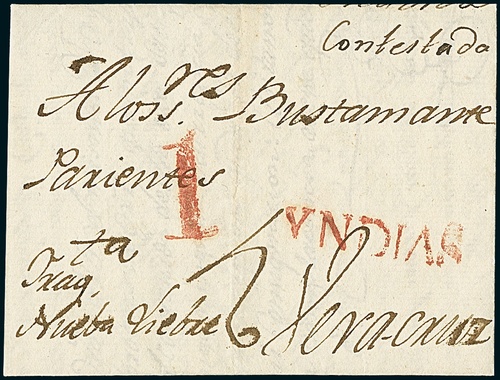 Contestada
A los S.res Bustamante
Parientes
1
YNDIAS
Frag.ta
Nueba Liebre
Veracruz